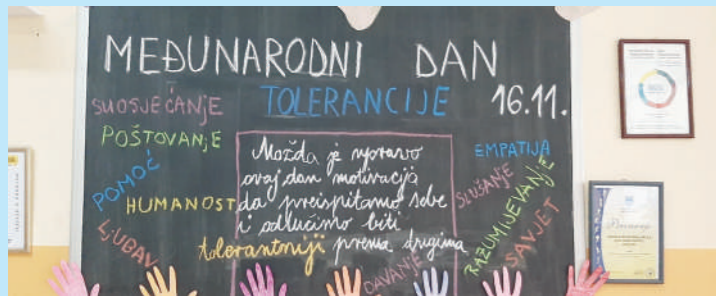 MEĐUNARODNI DAN
TOLERANCIJE 16.11.
SUOSJEĆANJE
POŠTOVANJE
POMOĆ
HUMANOST
LJUBAV
Možda je upravo
ovaj dan motivacija
da preispitamo sebe
i odlučimo biti
tolerantniji prema drugima
EMPATIJA
SLUŠANJE
RAZUMIJEVANJE
SAVJET
DAVANJE